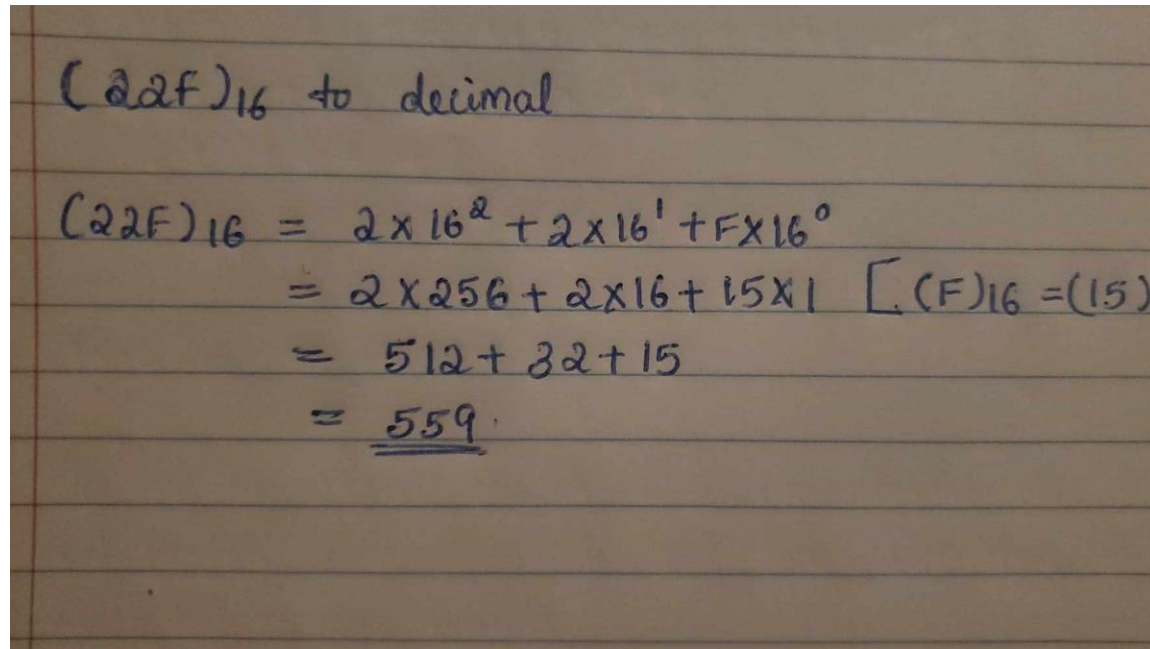 (22F)16 to decimal
(22F)16 = 2×16² + 2×16¹ + F×16⁰
= 2×256 + 2×16 + 15×1 [. (F)16 = (15)
= 512 + 32 + 15
= 559.